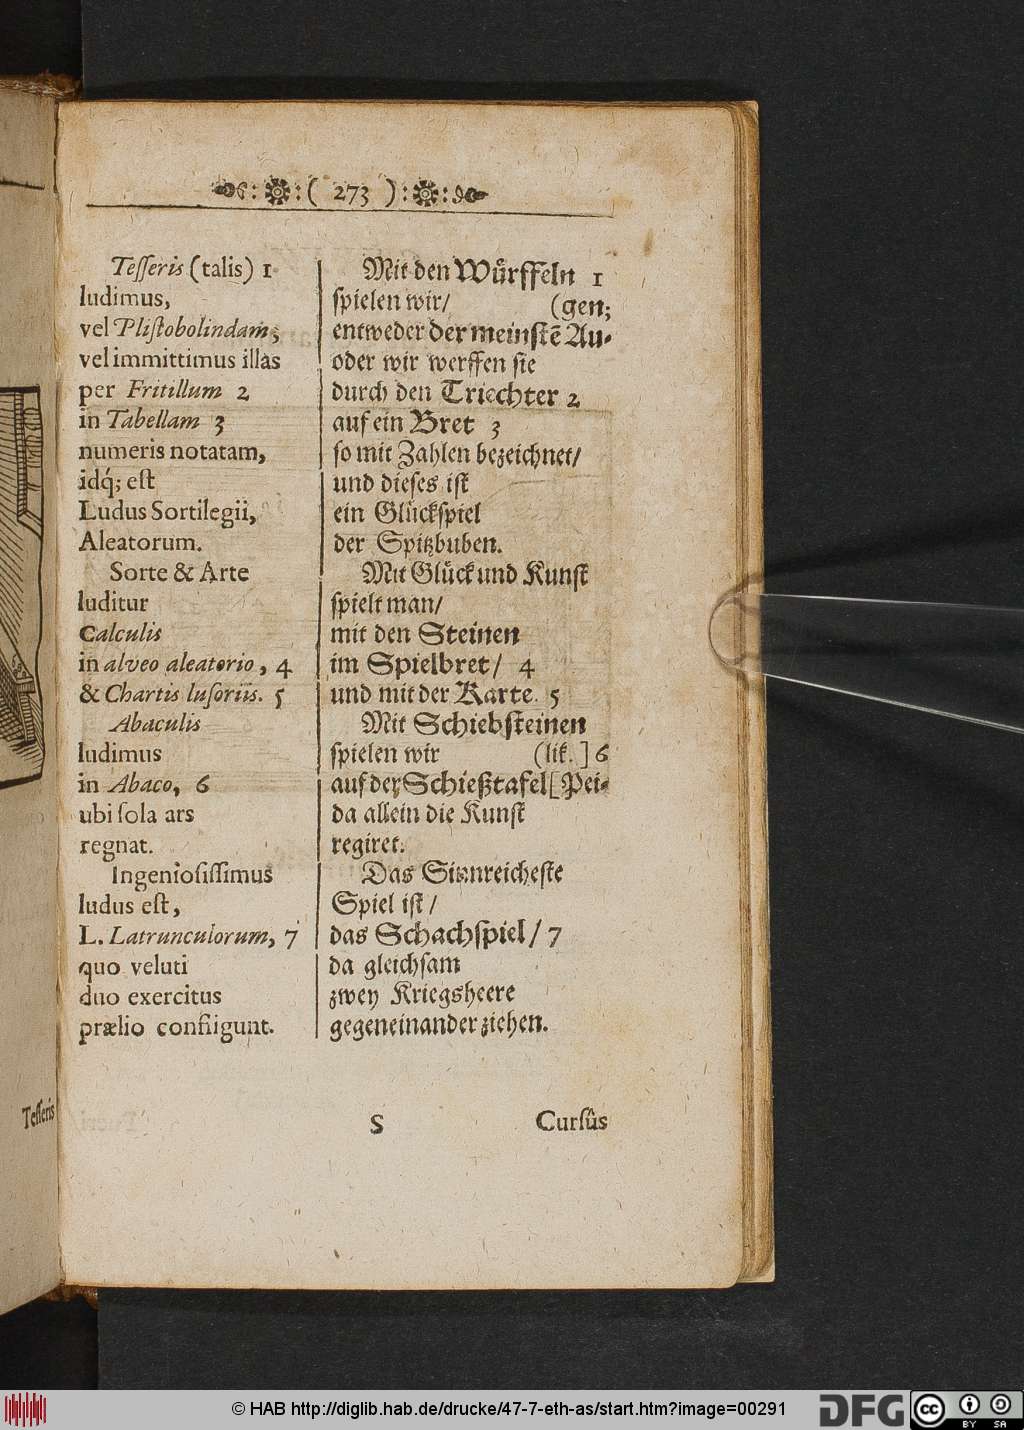 ( 273 )
Tesseris (talis) 1
ludimus,
vel Plistobolindam;
vel immittimus illas
per Fritillum 2
in Tabellam 3
numeris notatam,
idq́; est
Ludus Sortilegii,
Aleatorum.
Sorte & Arte
luditur
Calculis
in alveo aleatorio, 4
& Chartis lusoriis. 5
Abaculis
ludimus
in Abaco, 6
ubi sola ars
regnat.
Ingeniosissimus
ludus est,
L. Latrunculorum, 7
quo veluti
duo exercitus
prælio confligunt.
Mit den Würffeln 1
spielen wir/ (gen;
entweder der meinstẽ Au-
oder wir werffen sie
durch den Triechter 2
auf ein Bret 3
so mit Zahlen bezeichnet/
und dieses ist
ein Glückspiel
der Spitzbuben.
Mit Glück und Kunst
spielt man/
mit den Steinen
im Spielbret/ 4
und mit der Karte. 5
Mit Schiebsteinen
spielen wir (lik.] 6
auf der Schießtafel [Pei-
da allein die Kunst
regiret.
Das Sinnreicheste
Spiel ist/
das Schachspiel/ 7
da gleichsam
zwey Kriegsheere
gegeneinander ziehen.
Tesseris
S Cursûs
© HAB http://diglib.hab.de/drucke/47-7-eth-as/start.htm?image=00291
DFG
cc BY SA